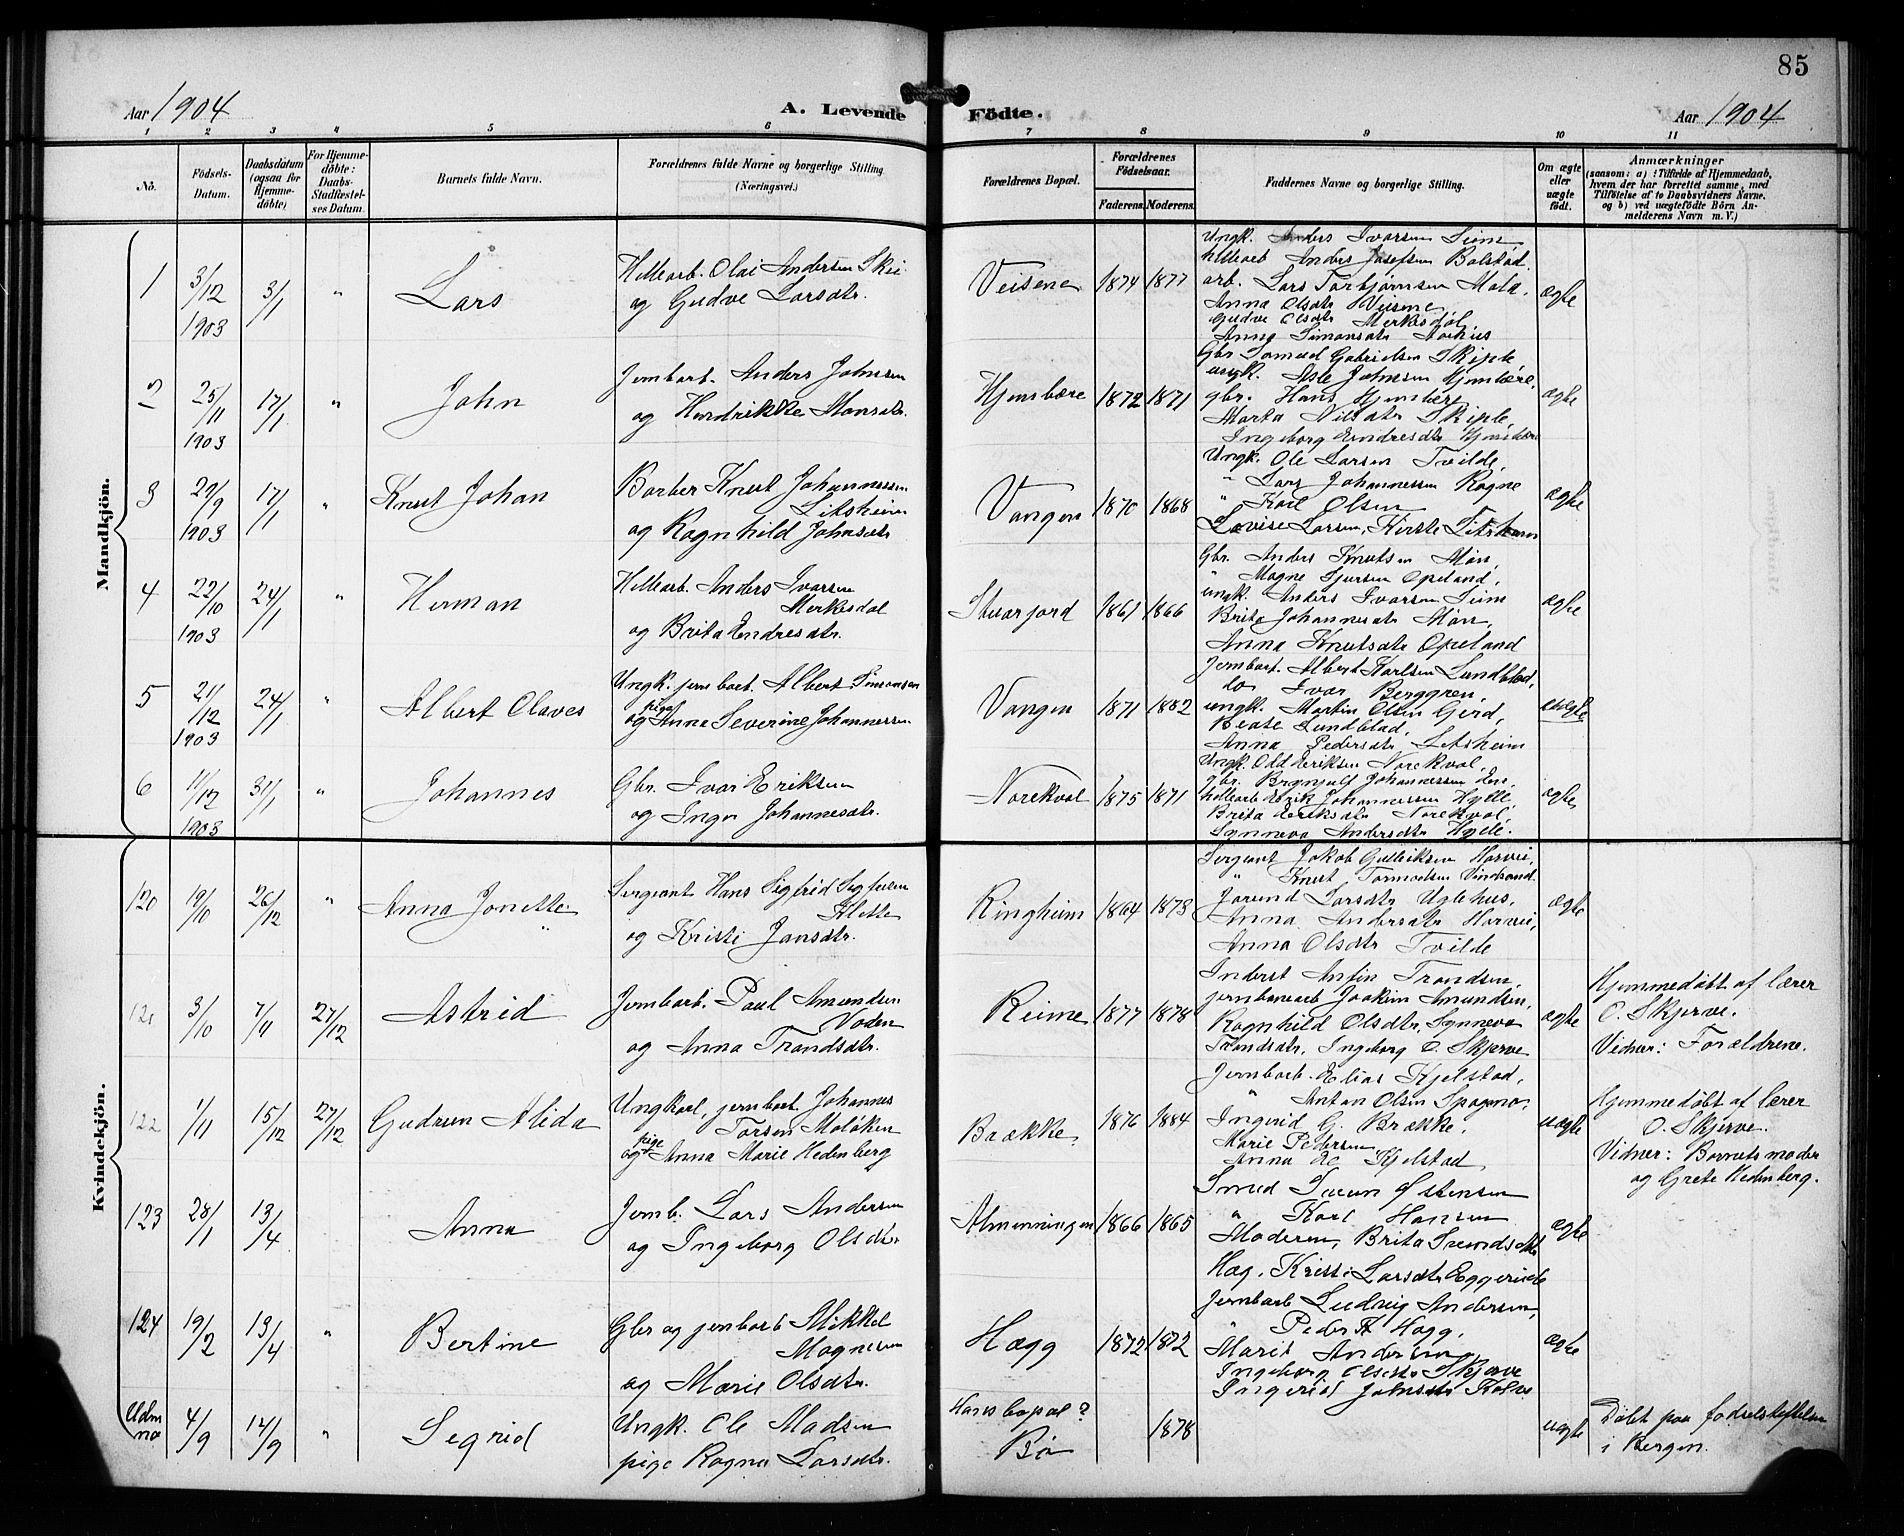 85
Aar 1904 A. Levende Födte. Aar 1904
1 2 3 4 5 6 7 8 9 10 11
No. Födsels-Datum. Daabsdatum (ogsaa for Hjemme-döbte) For Hjemme-döbte: Daabs-Stadfæstel-ses Datum. Barnets fulde Navn. Forældrenes fulde Navne og borgerlige Stilling (Næringsvei.) Forældrenes Bopæl. Forældrenes Födselsaar. Faderens. Moderens. Faddernes Navne og borgerlige Stilling. Om ægte eller uægte födt. Anmærkninger (saasom: a) i Tilfælde af Hjemmedaab, hvem der har forrettet samme, med Tilföielse af to Daabsvidners Navne. og b) ved uægtefödte Börn An-melderens Navn m. V.)
Mandkjön.
1 3/12 1903 3/1 " Lars
Hellearb. Olai Andersen Skei
og Gudve Larsdtr.
Veisene 1874 1877
Ungk. Anders Ivarsen Siim
hellearb Anders Josefsen Bolstad
arb. Lars Torbjørnsen Mola,
Anna Olsdtr Veisene
Gudve Olsdtr Merkesdal,
Anna Simonsdtr Aarhus
ægte
2 25/11 1903 17/1 " John
Jernbarb. Anders Johnsen
og Hendrikke Monsdtr.
Hjembære 1872 1871
Gbr Samuel Gabrielsen Skiple
ungk. Asle Johnsen Hjembære,
gbr. Hans Hjembære
Marta Nilsdtr Skiple,
Ingeborg Endresdtr Hjembære
ægte
3 27/9 1903 17/1 " Knut Johan
Barber Knut Johannessen
Litsheim
og Ragnhild Johnsdtr
Vangen 1870 1868
Ungk. Ole Larsen Tvilde,
" Lars Johannessen Rogne
" Karl Olsen
Lovise Larsen, Kirste Litsheim
ægte
4 22/10 1903 24/1 " Herman
Hellearb. Anders Ivarsen
Merkesdal
og Brita Endresdtr.
1861 1866
Gbr. Anders Knutsen Møn,
" Magne Sjursen Opeland,
ungk. Anders Ivarsen Siim
Brita Johannesdtr Møn,
Anna Knutsdtr Opeland
ægte
5 21/12 1903 24/1 " Albert Olaves
Ungk. jernbarb. Albert Simonsen
og pige Anna Severine Johannessen
Vangen 1871 1882
Jernbarb. Albert Karlsen Lundblad,
do Ivar Berggren,
ungk. Martin Olsen Gjerd,
Beate Lundblad,
Anna Pedersdtr Litsheim
uægte
6 11/12 1903 31/1 " Johannes
Gbr. Ivar Eriksen
og Inga Johannesdtr.
Norekval 1875 1871
Ungk. Odd Eriksen Norekval,
gbr. Brynjulf Johannessen En,
hellearb Erik Johannessen Hylle
Brita Eriksdtr Norekval,
Synneva Andersdtr Hylle.
ægte
Kvindekjön.
120 19/10 26/12 " Anna Jonette
Sergeant Hans Sigfrid Sigfridsen
Klette
og Kristi Jansdtr.
Ringheim 1864 1873
Sergeant Jakob Gulleiksen Horvei,
" Knut Tormodsen Vindsand
Jorund Larsdtr Uglehus,
Anna Andersdtr Horvei,
Anna Olsdtr Tvilde
ægte
121 3/10 7/11 27/12 Astrid
Jernbarb. Paul Amundsen
Vaden
og Anna Trondsdtr.
Reime 1877 1878
Inderst Anfin Trondsen,
jernbanearb Joakim Amundsen,
Ragnhild Olsdtr, Synneva
Trondsdtr, Ingeborg O. Skjerve
ægte
Hjemmedøbt af lærer
O. Skjerve.
Vidner: Forældrene.
122 1/11 15/12 27/12 Gudrun Alida
Ungkarl, jernbarb Johannes
Torsen Moløken
og pige Anna Marie Hedenberg
Brække 1876 1884
Jernbarb. Elias Kjelstad,
" Anton Olsen Spagmo,
Ingerid G. Brække,
Marie Pedersen
Anna Kjelstad
uægte
Hjemmedøbt af lærer
O. Skjerve.
Vidner: Barnets moder
og Grete Hedenberg.
123 28/1 13/4 Anna
Jernb. Lars Andersen
og Ingeborg Olsdtr
Almenningen 1866 1865
Smed Søren Stensen
" Karl Hansen
Moderen, Brita Svendsdtr
Hæg, Kristi Larsdtr Eggereide
ægte
124 19/2 13/4 " Bertine
Gbr og jernbarb Mikkel
Magnesen
og Marie Olsdtr.
Hægg 1872 1872
Jernbarb Ludvig Andersen,
" Peder A Hægg,
Marie Andersen,
Ingeborg Olsdtr Skjerve
Ingerid Johnsdtr Kolve
ægte
Uden no 4/9 14/9 " Segrid
Ungk. Ole Madsen
pige Ragna Larsdtr.
Hans bopæl?
Bø
1878
uægte
Døbt paa fødselsstiftelsen
i Bergen.